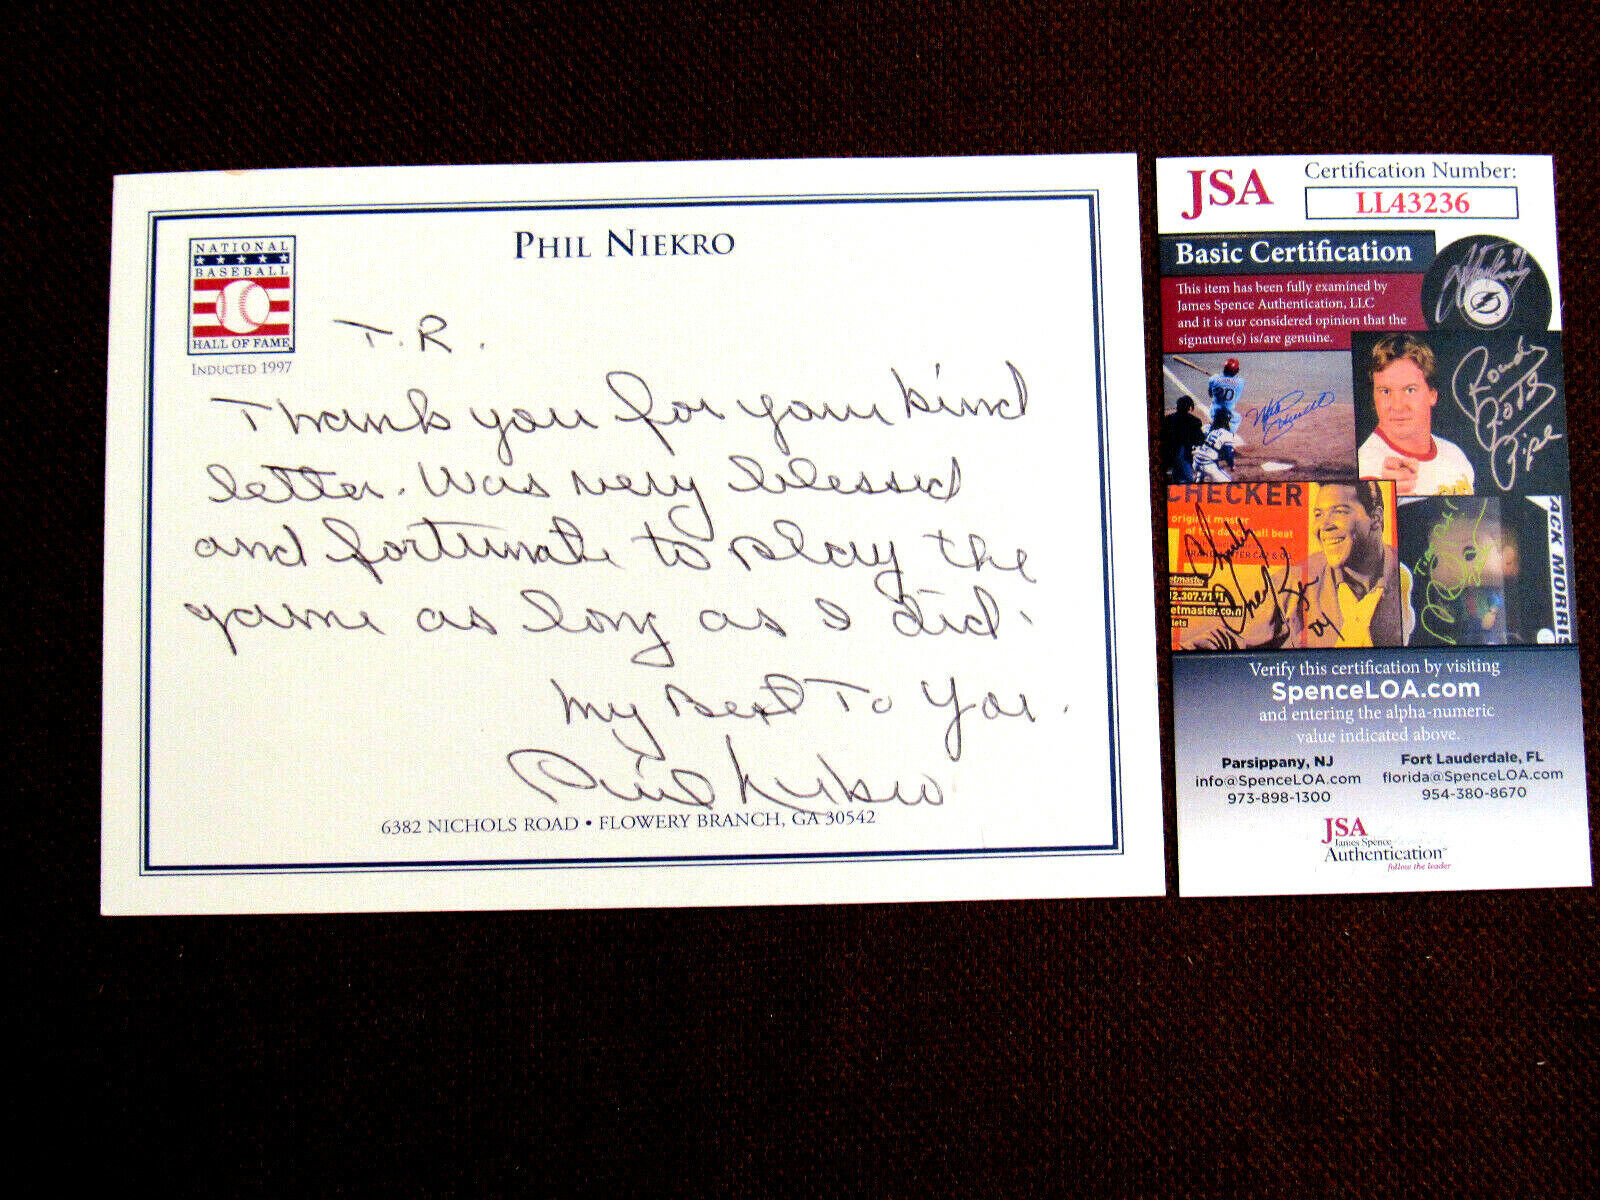 PHIL NIEKRO
NATIONAL
BASEBALL
HALL OF FAME
INDUCTED 1997
T.R.
Thank you for your kind
letter. Was very blessed
and fortunate to play the
game as long as I did.
My Best To You.
Phil Niekro
6382 NICHOLS ROAD • FLOWERY BRANCH, GA 30542
JSA
Certification Number:
LL43236
Basic Certification
This item has been fully examined by
James Spence Authentication, LLC
and it is our considered opinion that the
signature(s) is/are genuine.
Rowdy
Roddy
Piper
CHECKER
original master
beat
etmaster
2.307.71
etmaster.com
lets
Chubby
Checker
JACK MORRIS
Verify this certification by visiting
SpenceLOA.com
and entering the alpha-numeric
value indicated above.
Parsippany, NJ
info@SpenceLOA.com
973-898-1300
Fort Lauderdale, FL
florida@SpenceLOA.com
954-380-8670
JSA
James Spence
Authentication
follow the leader